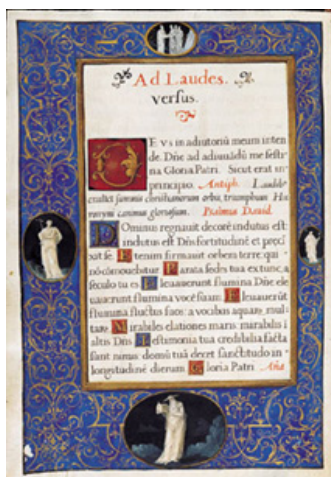 Ad Laudes.
versus.
DEVS in adiutoriũ meum inten
de. Dñe ad adiuuãdũ me festi
na Gloria Patri. Sicut erat in
principio. Antiph. Laudibus
summi christianorum orbis, triumphum Hie
ronymi canimus gloriosum. Psalmus Dauid.
Dominus regnauit decorẽ indutus est
indutus est Dñs fortitudinẽ et preci
xit se. Etenim firmauit orbem terre, qui
nõ cõmouebitur. Parata sedes tua ex tunc, a
seculo tu es. Eleuauerunt flumina Dñe ele
uauerunt flumina vocẽ suam. Eleuauerũt
flumina fluctus suos: a vocibus aquarũ mul
tarũ. Mirabiles elationes maris mirabilis ĩ
altis Dñs. Testimonia tua credibilia facta
sunt nimis: domũ tuã decet sanctitudo in
longitudinẽ dierum. Gloria Patri. Aña